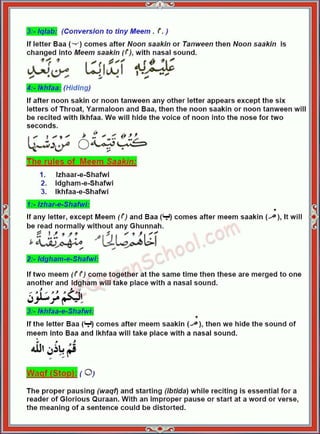 3:- Iqlab: (Conversion to tiny Meem . م .)
If letter Baa (ب) comes after Noon saakin or Tanween then Noon saakin is
changed into Meem saakin (م), with nasal sound.
4:- Ikhfaa: (Hiding)
If after noon sakin or noon tanween any other letter appears except the six
letters of Throat, Yarmaloon and Baa, then the noon saakin or noon tanween will
be recited with Ikhfaa. We will hide the voice of noon into the nose for two
seconds.
The rules of Meem Saakin:
1. Izhaar-e-Shafwi
2. Idgham-e-Shafwi
3. Ikhfaa-e-Shafwi
1:- Izhar-e-Shafwi:
If any letter, except Meem (م) and Baa (ب) comes after meem saakin (مْ), It will
be read normally without any Ghunnah.
2:- Idgham-e-Shafwi:
If two meem (م م) come together at the same time then these are merged to one
another and Idgham will take place with a nasal sound.
إِلَيْكُمْ مُرْسَلُوْنَ
3:- Ikhfaa-e-Shafwi:
If the letter Baa (ب) comes after meem saakin (مْ), then we hide the sound of
meem into Baa and Ikhfaa will take place with a nasal sound.
قُمْ بِاِذْنِ اللّٰه
Waqf (Stop): ( )
The proper pausing (waqf) and starting (Ibtida) while reciting is essential for a
reader of Glorious Quraan. With an Improper pause or start at a word or verse,
the meaning of a sentence could be distorted.